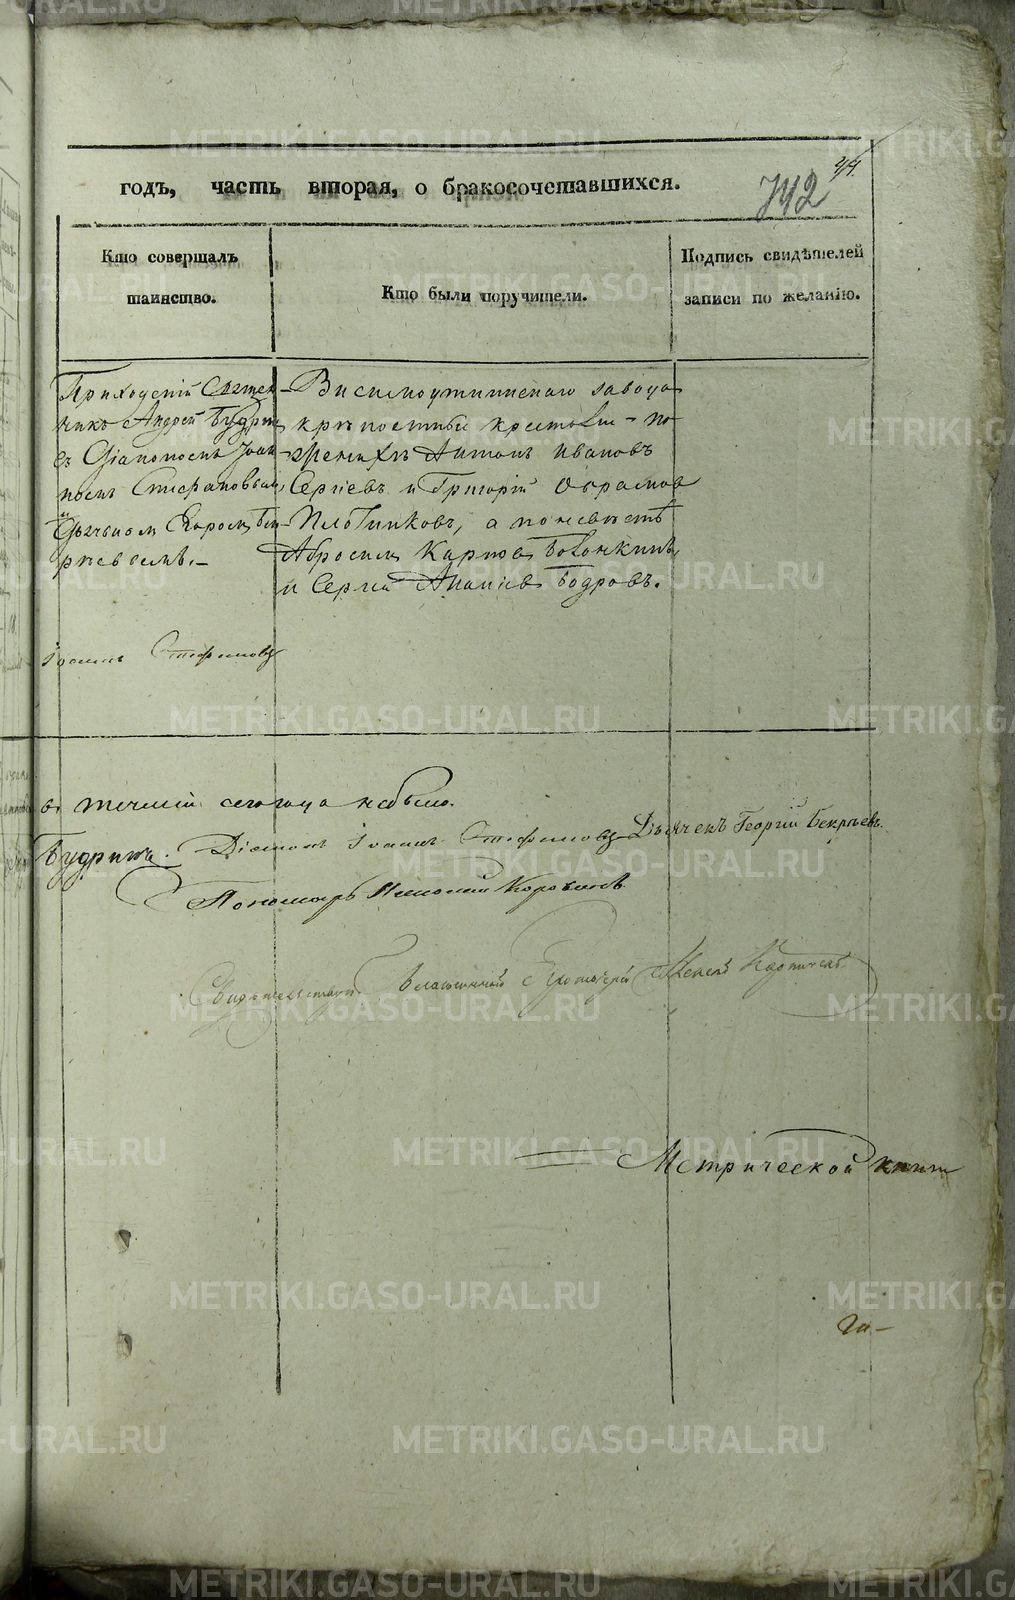 METRIKI.GASO-URAL.RU
24.
годъ, часть вторая, о бракосочетавшихся.
742
Кто совершалъ таинство.
Кто были поручители.
Подпись свидѣтелей записи по желанію.
Приходскій Священ-
никъ Андрей Будрин
съ Діакономъ Іоан-
номъ Стефановымъ,
Дьячкомъ Бек-
рѣевымъ.-
Висимоуткинскаго завода
крѣпостные крестьяне - по
женихѣ Антонъ Ивановъ
Сергѣевъ и Григорій Абрамовъ
Плотниковъ, а по невѣстѣ
Абросимъ Карпов
и Сергей Бодровъ.
Іоаннъ Стефановъ
въ теченіи сего года небыло.
Будринъ. Діаконъ Іоаннъ Стефановъ Дьячекъ Георгій Бекрѣевъ.
Пономарь Коровинъ
Свидетельствовалъ Благочинный
Метрической книги